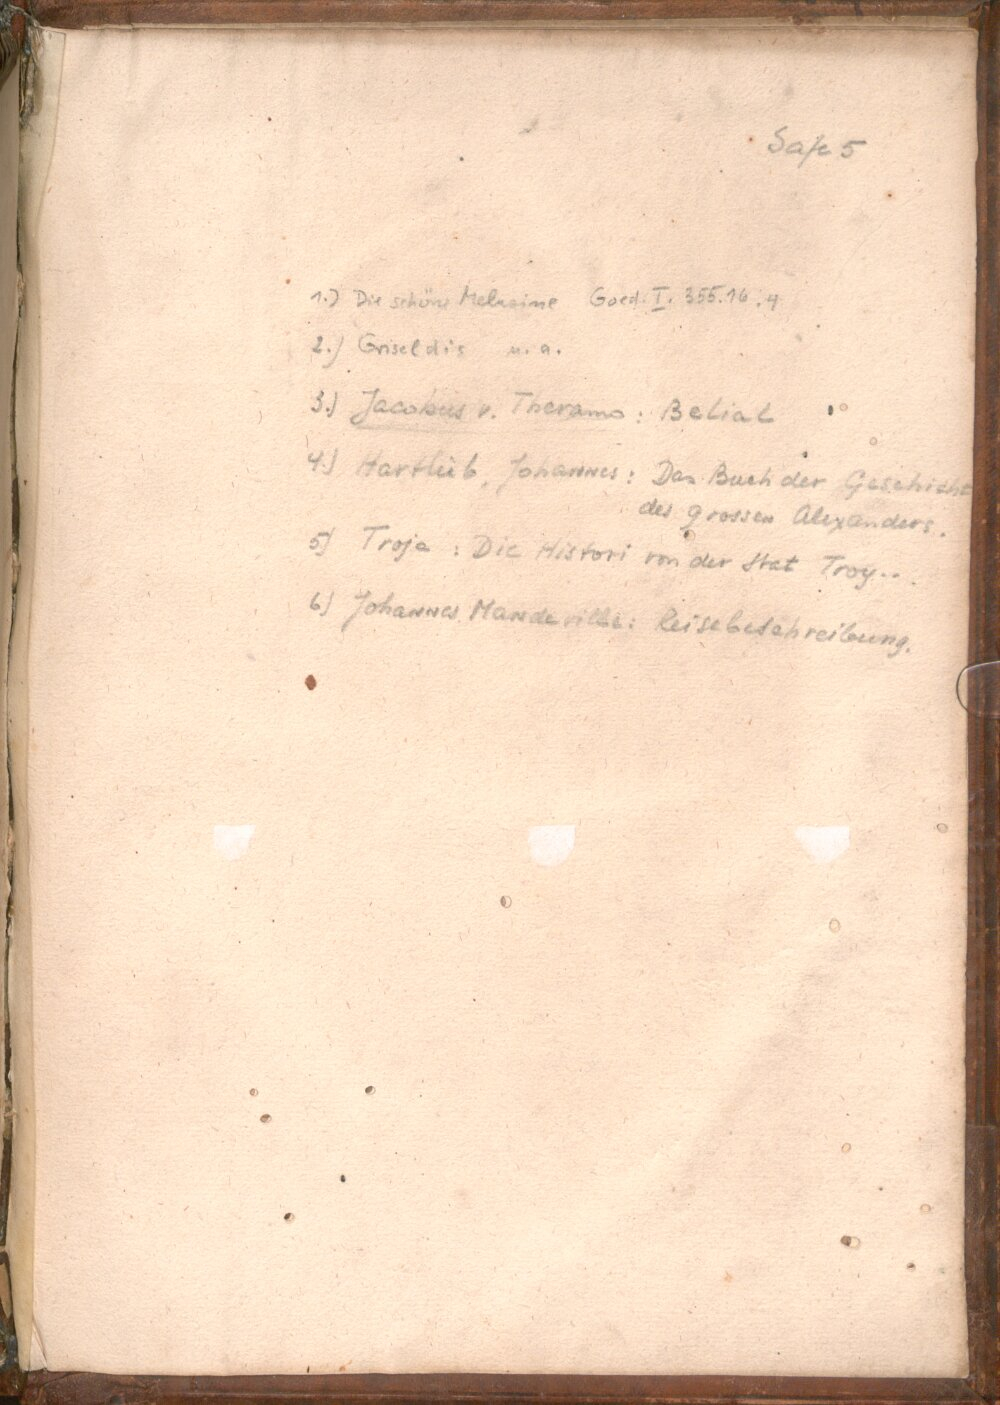 Safe 5
1.) Die schöne Melusine Goed. I. 355.16.4
2.) Griseldis u. a.
3.) Jacobus v. Theramo: Belial
4.) Hartlieb, Johannes: Das Buch der Geschicht
des grossen Alexanders.
5) Troja: Die Histori von der Stat Troy...
6) Johannes Mandeville: Reisebeschreibung.